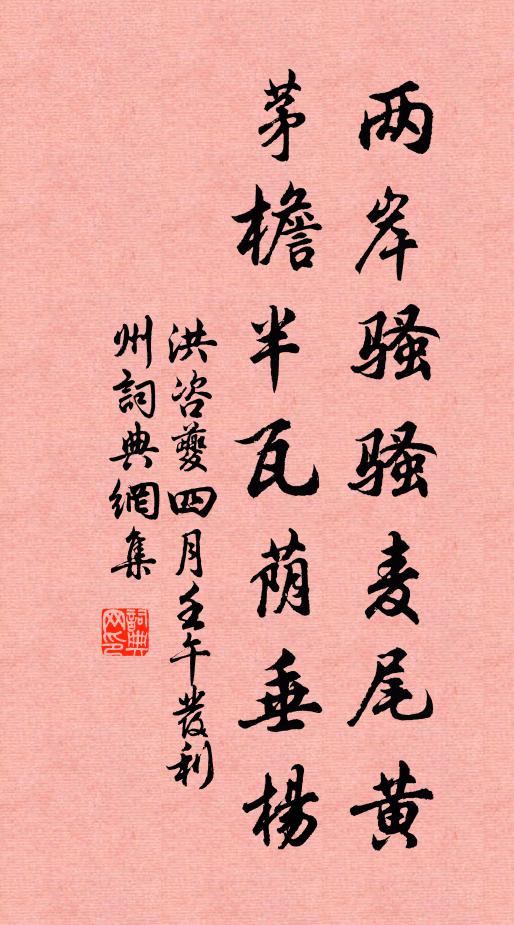 两岸骚骚麦尾黄
茅檐半瓦荫垂杨
洪咨夔四月壬午發利
州詞典網集
詞典
网印